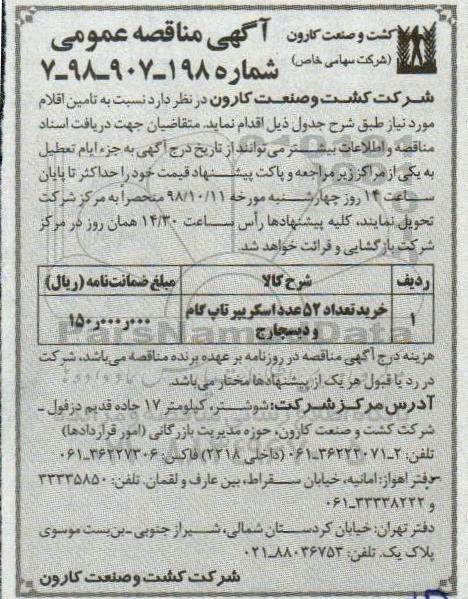 کشت و صنعت کارون
(شرکت سهامی خاص)
آگهی مناقصه عمومی
شماره ۱۹۸-۹۰۷-۹۸-۷
شرکت کشت و صنعت کارون در نظر دارد نسبت به تامین اقلام
مورد نیاز طبق شرح جدول ذیل اقدام نماید. متقاضیان جهت دریافت اسناد
مناقصه و اطلاعات بیشتر می‌توانند از تاریخ درج آگهی به جزء ایام تعطیل
به یکی از مراکز زیر مراجعه و پاکت پیشنهاد قیمت خود را حداکثر تا پایان
ساعت ۱۴ روز چهارشنبه مورخه ۹۸/۱۰/۱۱ منحصراً به مرکز شرکت
تحویل نمایند، کلیه پیشنهادها رأس ساعت ۱۴/۳۰ همان روز در مرکز
شرکت بازگشایی و قرائت خواهد شد.
ردیف شرح کالا مبلغ ضمانت‌نامه (ریال)
۱ خرید تعداد ۵۲ عدد اسکریپر تاپ گام ۱۵۰٫۰۰۰٫۰۰۰
و دیسچارج
ParsNamadData
هزینه درج آگهی مناقصه در روزنامه بر عهده برنده مناقصه می‌باشد، شرکت
در رد یا قبول هر یک از پیشنهادها مختار می‌باشد.
آدرس مرکز شرکت: شوشتر، کیلومتر ۱۷ جاده قدیم دزفول -
شرکت کشت و صنعت کارون، حوزه مدیریت بازرگانی (امور قراردادها)
تلفن: ۲-۳۶۲۲۲۰۷۱-۰۶۱ (داخلی ۲۲۱۸) فاکس: ۳۶۲۲۷۳۰۶-۰۶۱
دفتر اهواز: امانیه، خیابان سقراط، بین عارف و لقمان. تلفن: ۳۳۳۳۵۸۵۰
و ۳۳۳۳۸۲۲۲-۰۶۱
دفتر تهران: خیابان کردستان شمالی، شیراز جنوبی-بن‌بست موسوی
پلاک یک. تلفن: ۸۸۰۳۶۷۵۳-۰۲۱
شرکت کشت و صنعت کارون